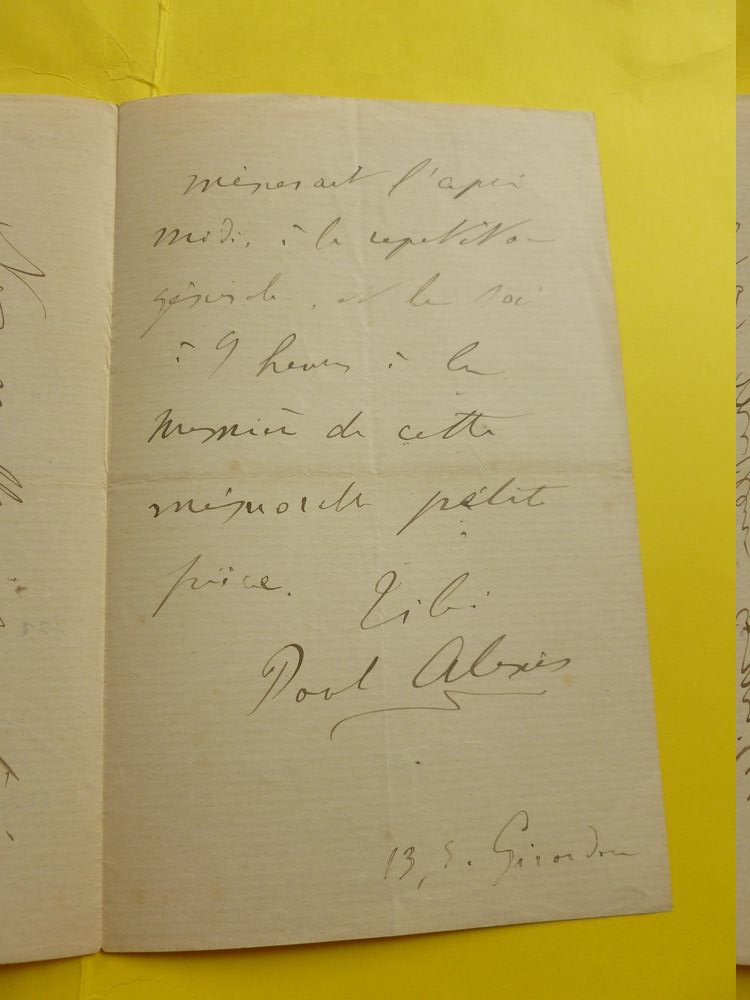 mènerait l'après
midi, à la repetition
générale, et le soir
à 9 heures à la
première de cette
mémorable petite
pièce. Tibi
Paul Alexis
13, r. Girardon